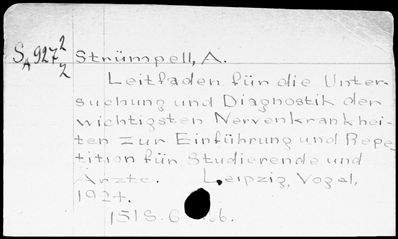 SA 927 2/2 Strümpell, A.
Leitfaden für die Unter-
suchung und Diagnostik der
wichtigsten Nervenkrankhei-
ten zur Einführung und Repe-
tition für Studierende und
Ärzte. Leipzig, Vogel,
1924.
151 S. 6